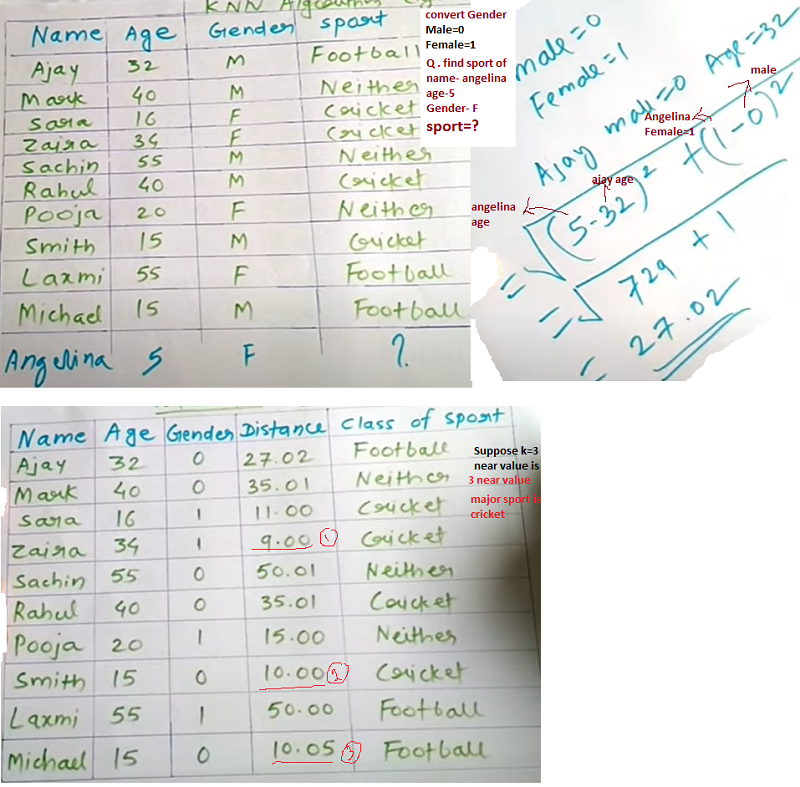 KNN Algorithm
Name Age Gender sport
Ajay 32 M Football
Mark 40 M Neither
Sara 16 F Cricket
Zaira 34 F Cricket
Sachin 55 M Neither
Rahul 40 M Cricket
Pooja 20 F Neither
Smith 15 M Cricket
Laxmi 55 F Football
Michael 15 M Football
Angelina 5 F ?
convert Gender
Male=0
Female=1
Q . find sport of
name- angelina
age-5
Gender- F
sport=?
male=0
Female=1
Ajay male=0 Age=32
male
Angelina
Female=1
ajay age
angelina
age
= √(5-32)² + (1-0)²
= √729 + 1
= 27.02
Name Age Gender Distance Class of sport
Ajay 32 0 27.02 Football
Mark 40 0 35.01 Neither
Sara 16 1 11.00 Cricket
Zaira 34 1 9.00 1 Cricket
Sachin 55 0 50.01 Neither
Rahul 40 0 35.01 Cricket
Pooja 20 1 15.00 Neither
Smith 15 0 10.00 2 Cricket
Laxmi 55 1 50.00 Football
Michael 15 0 10.05 3 Football
Suppose k=3
near value is
3 near value
major sport is
cricket